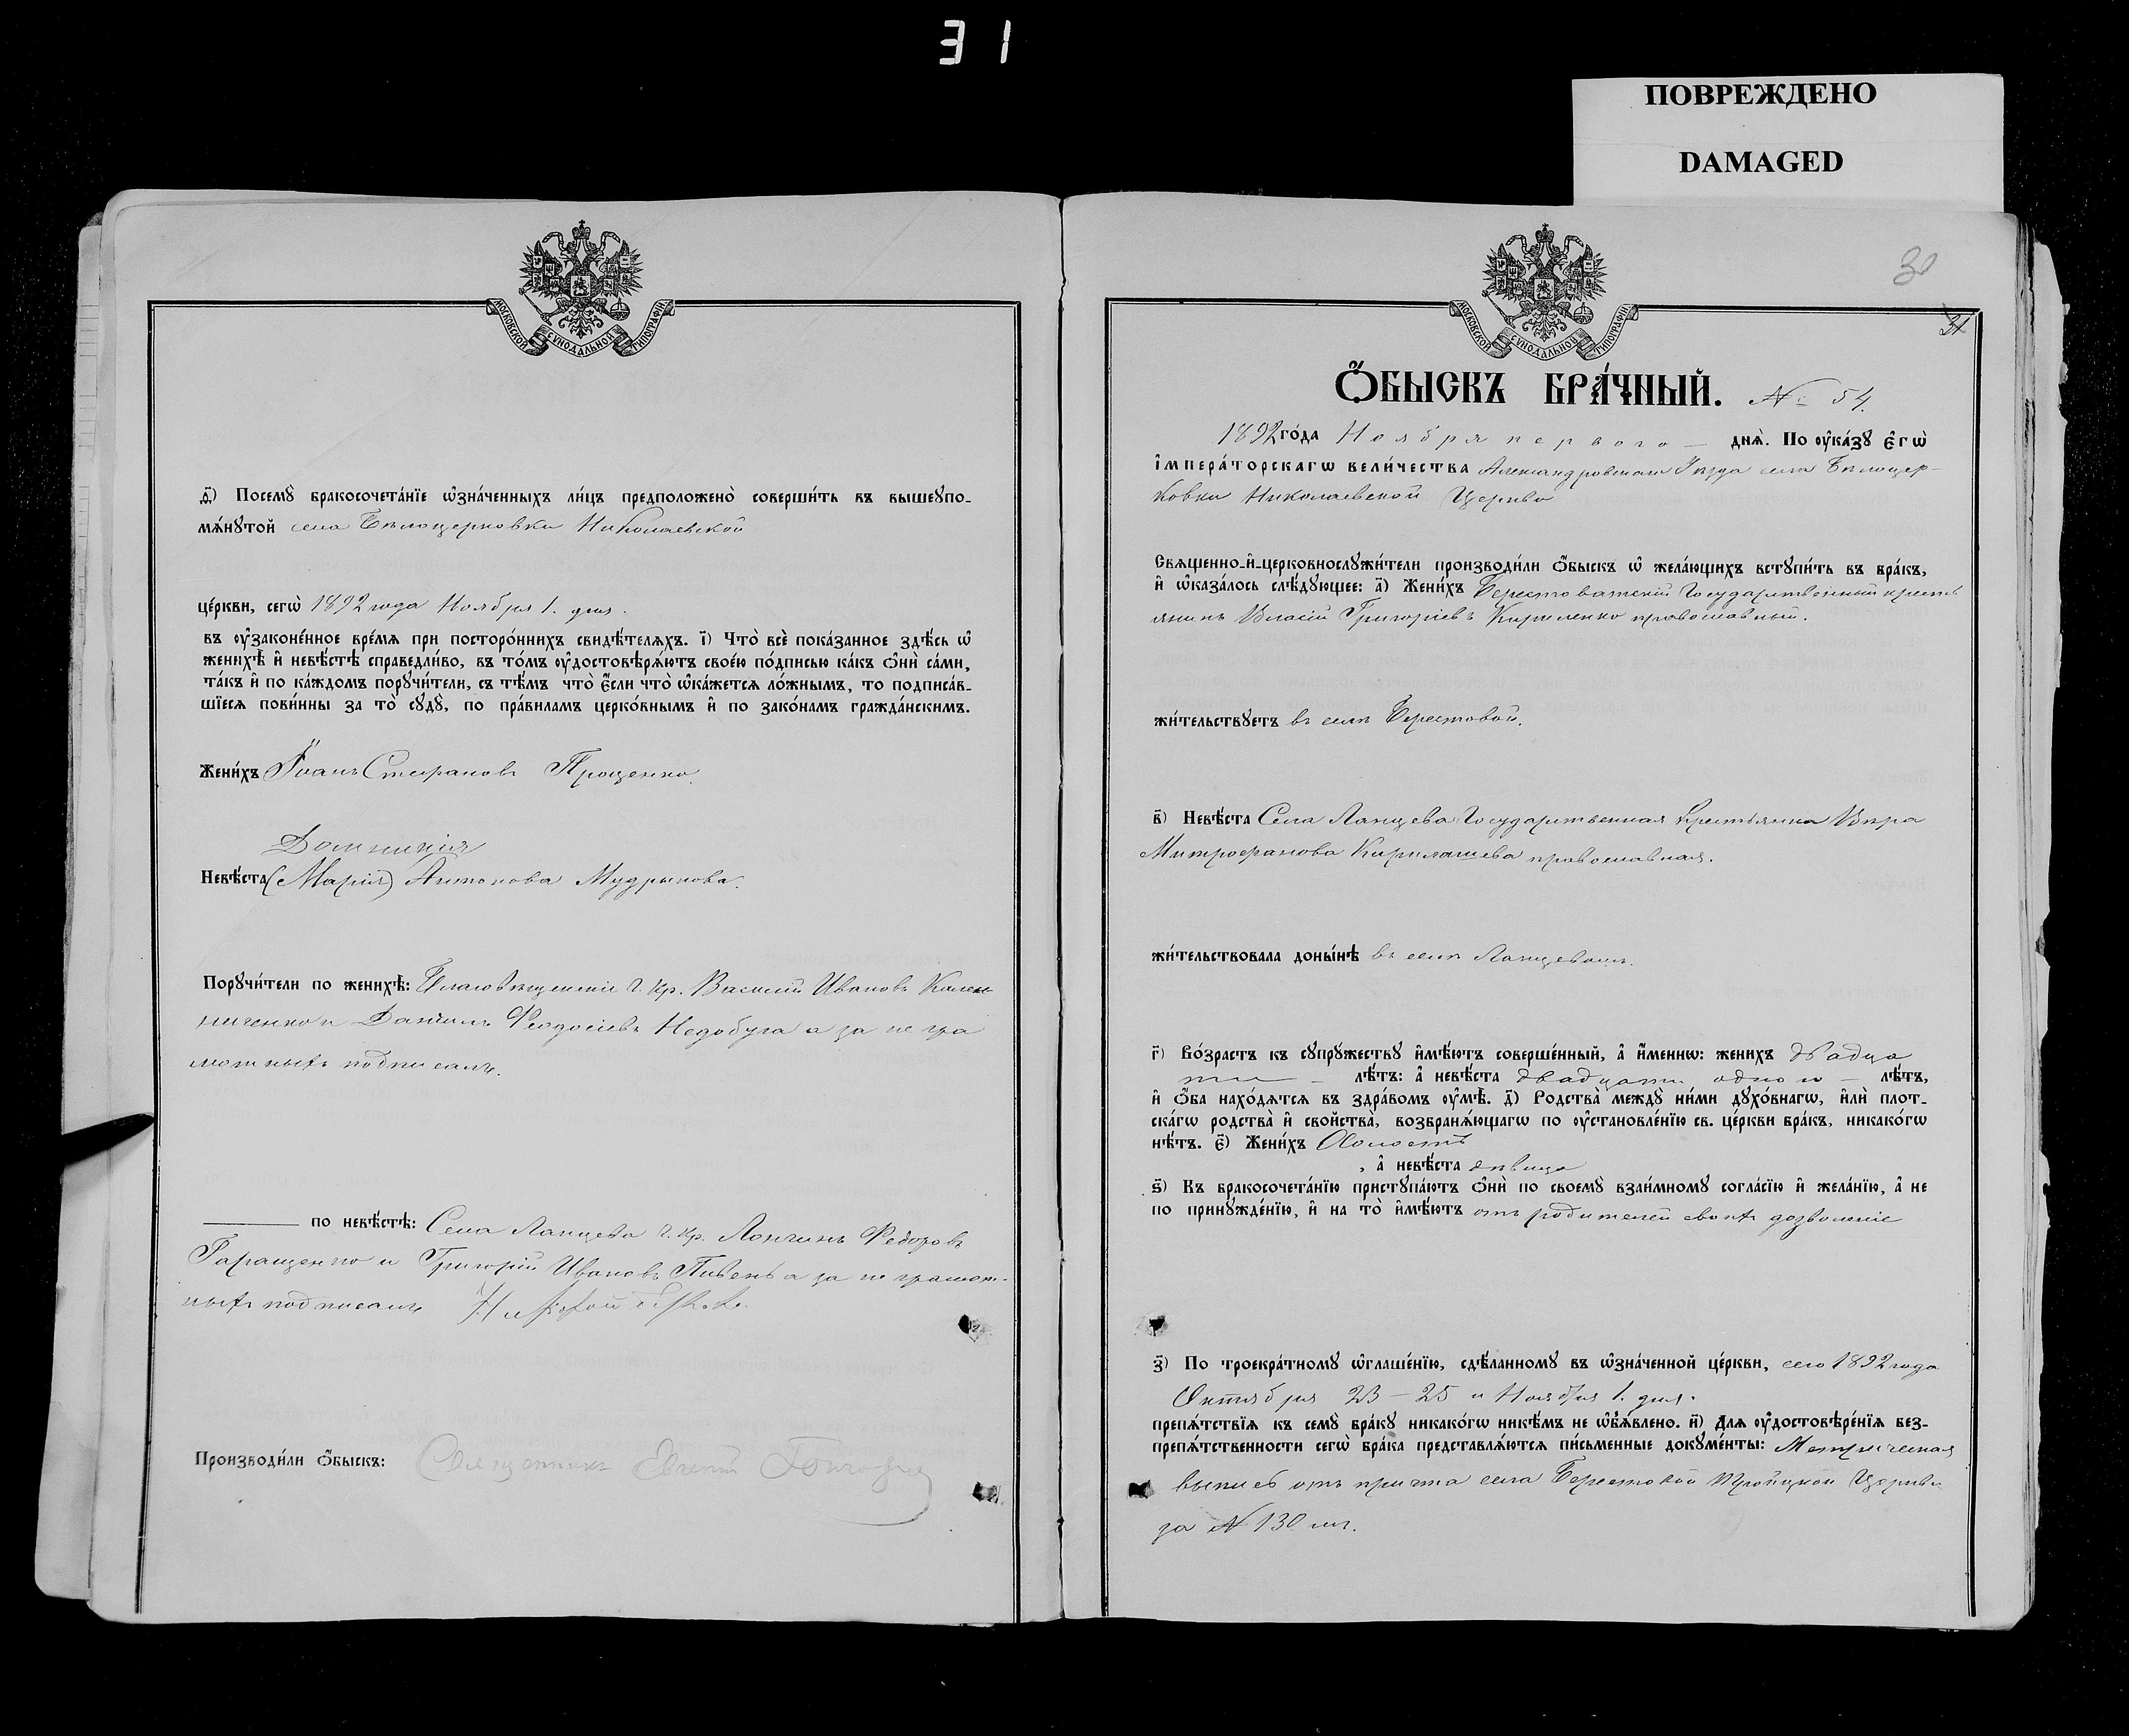 31
ПОВРЕЖДЕНО
DAMAGED
МОСКОВСКОЙ СѴНОДАЛЬНОЙ ТИПОГРАФІИ
Ѳ҃) Посемꙋ̀ бракосочета́нїе ѡ҆зна́ченныхъ ли́цъ предположено̀ соверши́ть въ вышеꙋпо-
мѧ́нꙋтой села Бѣлоцерковки Николаевской
це́ркви, сегѡ̀ 1892 года Ноября 1. дня.
въ ᲂу҆законе́нное вре́мѧ при посторо́ннихъ свидѣ́телѧхъ. І҃) Что̀ всѐ пока́занное здѣ́сь ѡ҆
женихѣ̀ и҆ невѣ́стѣ справедли́во, въ то́мъ ᲂу҆достовѣрѧ́ютъ свое́ю по́дписью ка́къ ѻ҆нѝ са́ми,
та́къ и҆ по ка́ждомъ порꙋчи́тели, съ тѣ́мъ что̀ є҆́сли что̀ ѡ҆ка́жетсѧ ло́жнымъ, то подписа́в-
шїесѧ пови́нны за то̀ сꙋдꙋ̀, по пра́виламъ церко́внымъ и҆ по зако́намъ гражда́нскимъ.
Жени́хъ Іоанъ Стефановъ Проценко.
Домникія
Невѣ́ста (Марія) Антонова Мудрыкова.
Порꙋчи́тели по женихѣ̀: Благовѣщенскіе Г. кр. Василій Ивановъ Кален-
ниченко и Даніилъ Феодосіевъ Недобуга а за не гра
мотныхъ подписалъ.
по невѣ́стѣ: Села Ланцева Г. кр. Логинъ Федоровъ
Таращенко и Григорій Ивановъ Пивень а за не грамот-
ныхъ подписалъ
Производи́ли ѻ҆́быскъ: Священникъ Евгеній
МОСКОВСКОЙ СѴНОДАЛЬНОЙ ТИПОГРАФІИ
30
31
Ѻ҆́БЫСКЪ БРА́ЧНЫЙ. № 54.
1892 го́да Ноября перваго — днѧ̀. По ᲂу҆ка́зꙋ є҆гѡ̀
і҆мпера́торскагѡ вели́чества Александровскаго Уѣзда села Бѣлоцер-
ковки Николаевской Церкви
Свѧщенно-и҆-церковнослꙋжи́тели производи́ли ѻ҆́быскъ ѡ҆ жела́ющихъ встꙋпи́ть въ бра́къ,
и҆ ѡ҆каза́лось слѣ́дꙋющее: а҃) Жени́хъ Берестоватскій Государственный кресть
янинъ Власій Григоріевъ Кириленко православный.
жи́тельствꙋетъ въ селѣ Берестовой.
в҃) Невѣ́ста Села Ланцева Государственная Крестьянка Вѣра
Митрофанова Кирилашева православная.
жи́тельствовала доны́нѣ въ селѣ Ланцевомъ.
г҃) Во́зрастъ къ сꙋпрꙋ́жествꙋ и҆мѣ́ютъ соверше́нный, а҆ и҆́меннѡ: жени́хъ двадца
ти — лѣ́тъ: а҆ невѣ́ста двадцати одного — лѣ́тъ,
и҆ ѻ҆́ба нахо́дѧтсѧ въ здра́вомъ ᲂу҆мѣ̀. д҃) Родства̀ междꙋ̀ ни́ми дꙋхо́внагѡ, и҆лѝ плот-
ска́гѡ родства̀ и҆ свойства̀, возбранѧ́ющагѡ по ᲂу҆становле́нїю св. це́ркви бра́къ, никако́гѡ
нѣ́тъ. є҃) Жени́хъ Холостъ
, а҆ невѣ́ста дѣвица
ѕ҃) Къ бракосочета́нїю пристꙋпа́ютъ ѻ҆нѝ по своемꙋ̀ взаи́мномꙋ согла́сїю и҆ жела́нїю, а҆ не
по принꙋжде́нїю, и҆ на то̀ и҆мѣ́ютъ отъ родителей своихъ дозволеніе
з҃) По троекра́тномꙋ ѡ҆глаше́нїю, сдѣ́ланномꙋ въ ѡ҆зна́ченной це́ркви, сего 1892 года
Октября 23 — 25 и Ноября 1. дня.
препѧ́тствїѧ къ семꙋ̀ бра́кꙋ никако́гѡ никѣ́мъ не ѡ҆б̾ѧ́влено. и҃) Для ᲂу҆достовѣре́нїѧ без-
препѧ́тственности сегѡ̀ бра́ка представлѧ́ютсѧ пи́сьменные докꙋме́нты: Метрическая
выпись отъ причта села Берестовой Троицкой Церкви
за № 130 мъ.